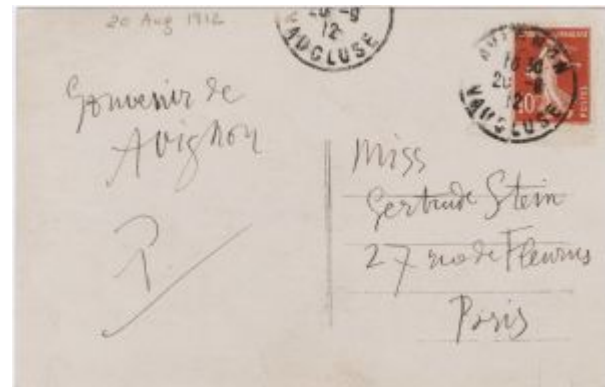 20 Aug 1912
20 -8
12
VAUCLUSE
AVIGNON
16 30
20 -8
12
VAUCLUSE
10
POSTES
Souvenir de
Avignon
P.
Miss
Gertrude Stein
27 rue de Fleurus
Paris